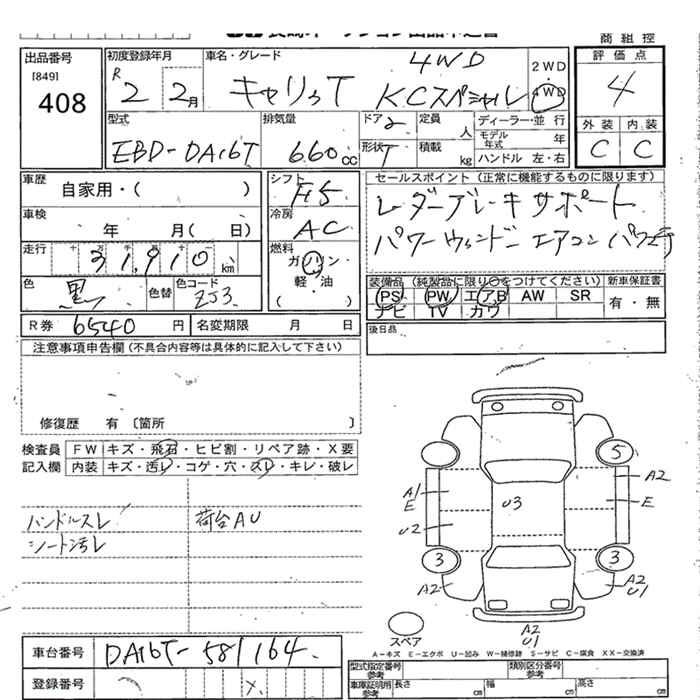 商 組 控
出品番号
[849]
408
初度登録年月
R 2 2月
車名・グレード
4WD
キャリィT KCスペシャル
2WD
4WD
評価点
4
外装 内装
C C
型式
EBD-DA16T
排気量
660cc
ドア 2
形状 T
定員 人
積載 kg
ディーラー・並 行
モデル年式 年
ハンドル 左・右
車歴
自家用・( )
シフト
F5
セールスポイント (正常に機能するものに限ります)
レーダーブレーキサポート
パワーウィンドー エアコン パワステ
車検
年 月( 日)
冷房
AC
走行
十 万 千 百 十
31,910 km
燃料
ガソリン・
軽・油
( )
色
黒
色替
色コード
ZJ3
装備品 (純製品に限り○をつけてください)
PS PW エアB AW SR
ナビ TV カワ
新車保証書
有・無
R券 6540 円
名変期限 月 日
後日品
注意事項申告欄 (不具合内容等は具体的に記入して下さい)
修復歴 有 〔箇所 〕
検査員
記入欄
FW キズ・飛石・ヒビ割・リペア跡・X要
内装 キズ・汚レ・コゲ・穴・スレ・キレ・破レ
ハンドルスレ 荷台AU
シート汚レ
5
A2
A1
E
E
U3
U2
3
3
A2
A2
U1
スペア
A2
U1
A-キズ E-エクボ U-凹み W-補修跡 S-サビ C-腐食 XX-交換済
車台番号
DA16T-581164
登録番号
型式指定番号
参考
類別区分番号
参考
車庫証明用
参考
長さ cm 幅 cm 高さ cm